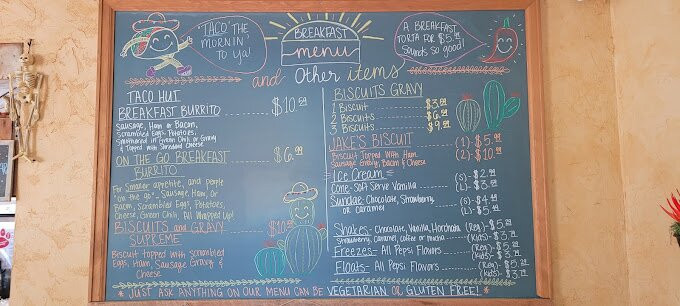 "TACO" THE
MORNIN'
TO Ya!
BREAKFAST
menu
A BREAKFAST
TORTA FOR $5.99
Sounds so good!
and Other items
TACO HUT
BREAKFAST BURRITO
$10.99
Sausage, Ham or Bacon,
Scrambled Eggs, Potatoes,
Smothered in Green Chili or Gravy
& Topped with Shredded Cheese
ON THE GO BREAKFAST
BURRITO
$6.99
For smaller appetite, and people
"on the go". Sausage, Ham, or
Bacon, Scrambled Eggs, Potatoes,
Cheese, Green Chili, All Wrapped Up!
BISCUITS and GRAVY
SUPREME
Biscuit topped with scrambled
Eggs, Ham, Sausage Gravy &
Cheese
BISCUITS GRAVY
1 Biscuit $3.99
2 Biscuits $6.99
3 Biscuits $9.99
JAKE'S BISCUIT (1)-$5.99
Biscuit Topped With Ham, (2)-$10.99
Sausage Gravy, Bacon & Cheese
Ice Cream
Cone-Soft Serve Vanilla (S)-$2.49
(L)-$3.49
Sundae-Chocolate, Strawberry, (S)-$4.49
or Caramel (L)-$5.49
Shakes-Chocolate, Vanilla, Horchata (Reg)-$5.49
Strawberry, Caramel, Coffee or Mocha (Kids)-$3.49
Freezes-All Pepsi Flavors (Reg)-$5.49
(Kids)-$3.49
Floats-All Pepsi Flavors (Reg)-$5.49
(kids)-$3.49
* JUST ASK ANYTHING ON OUR MENU CAN BE VEGETARIAN OR GLUTEN FREE! *